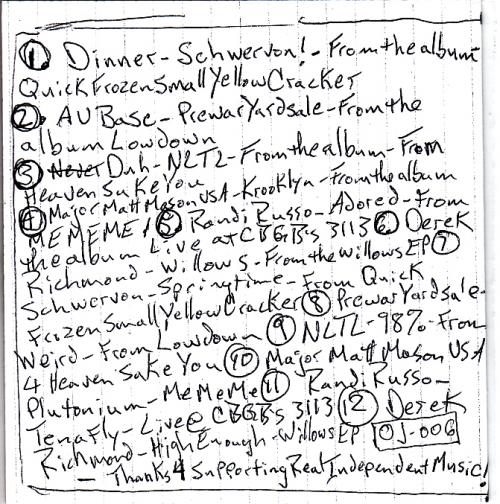 ① Dinner-Schwervon!-From the album
Quick Frozen Small Yellow Cracker
②. AU Base-Prewar Yardsale-From the
album Lowdown
③ Duh-NLTL-From the album-From
Heaven Sake You
④ Major Matt Mason USA-Krooklyn-From the album
ME ME ME! ⑤ Randi Russo-Adored-From
the album Live at CBGB's 3113 ⑥ Derek
Richmond-Willows-From the Willows EP ⑦
Schwervon-Springtime-From Quick
Frozen Small Yellow Cracker ⑧ Prewar Yardsale-
Weird-From Lowdown ⑨ NLTL-98%-From
4 Heaven Sake You ⑩ Major Matt Mason USA
Plutonium-MeMeMe ⑪ Randi Russo-
Tenafly-Live@CBGB's 3113 ⑫ Derek
Richmond-High Enough-Willows EP OJ-006
- Thanks 4 Supporting Real Independent Music!